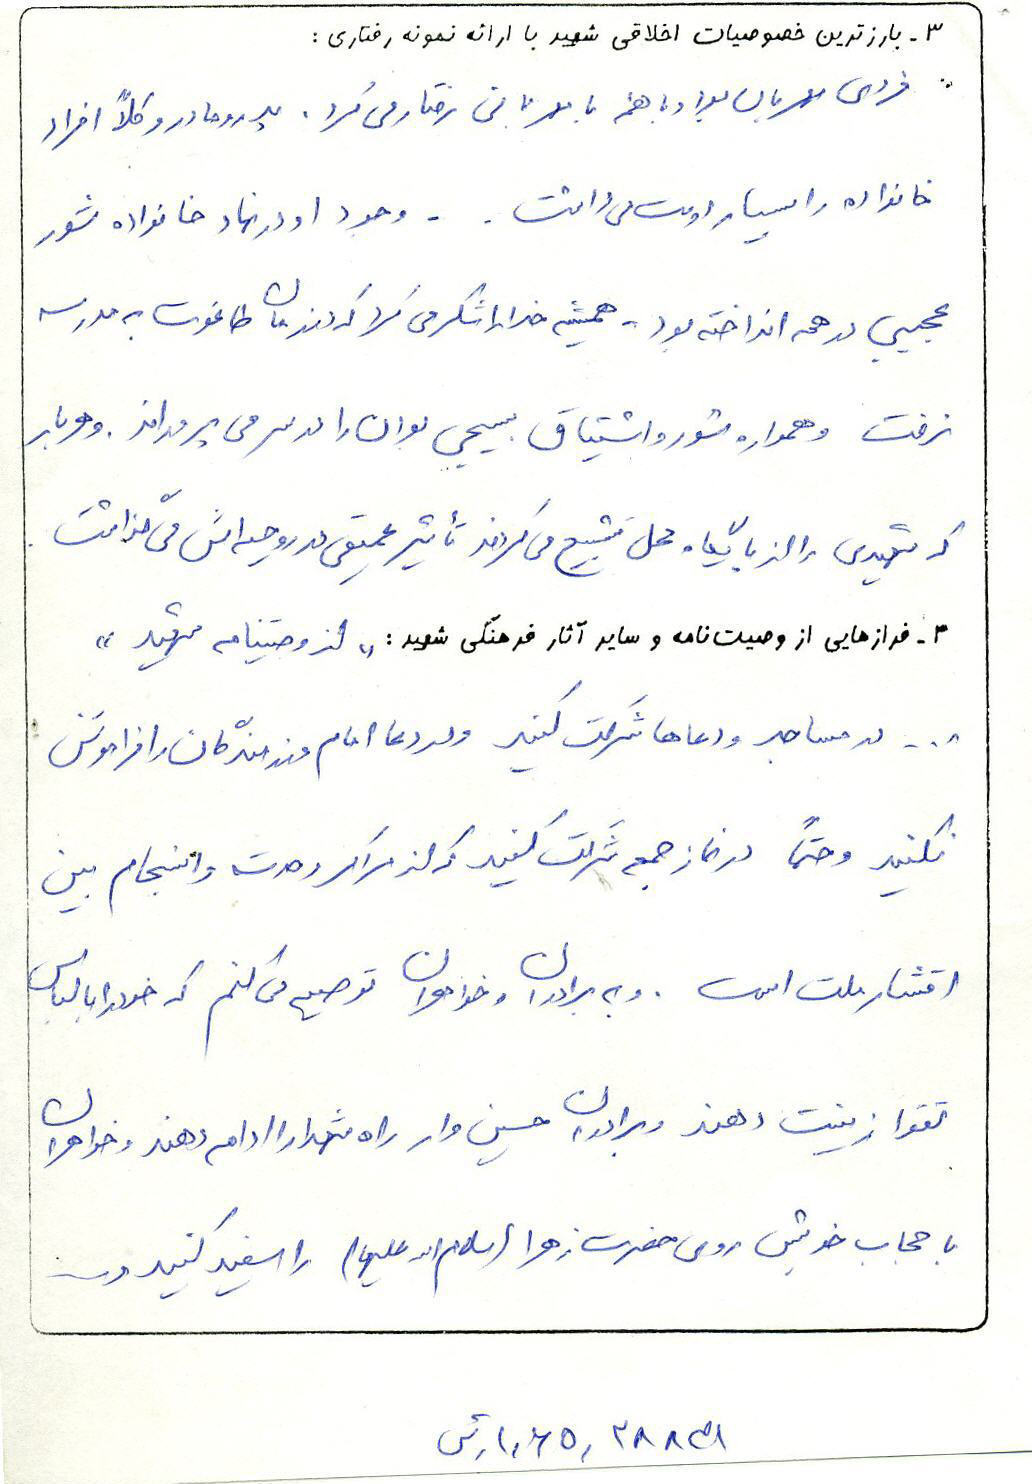 ۳ - بارزترین خصوصیات اخلاقی شهید با ارائه نمونه رفتاری :
فردی مهربان بود و با همه با مهربانی رفتار می کرد . پدر و مادر و کلاً افراد
خانواده را بسیار دوست می داشت . - وجود او در نهاد خانواده شور
عجیبی در همه انداخته بود - همیشه خدا را شکر می کرد که در زمان طاغوت به مدرسه
نرفت و همواره شور و اشتیاق بسیجی بودن را در سر می پروراند . و هر بار
که شهیدی را از پایگاه محل تشییع می کردند تأثیر عمیقی در روحیه اش می گذاشت .
۴ - فرازهایی از وصیت‌نامه و سایر آثار فرهنگی شهید : « از وصیتنامه شهید »
... در مساجد و دعاها شرکت کنید و در دعا امام و رزمندگان را فراموش
نکنید و حتماً در نماز جمعه شرکت کنید که از مراکز وحدت و انسجام بین
اقشار ملت است . و به برادران و خواهران توصیه می کنم که خود را با لباس
تقوا زینت دهند و برادران حسین وار راه شهدا را ادامه دهند و خواهران
با حجاب خویش روی حضرت زهرا (سلام الله علیها) را سفید کنید